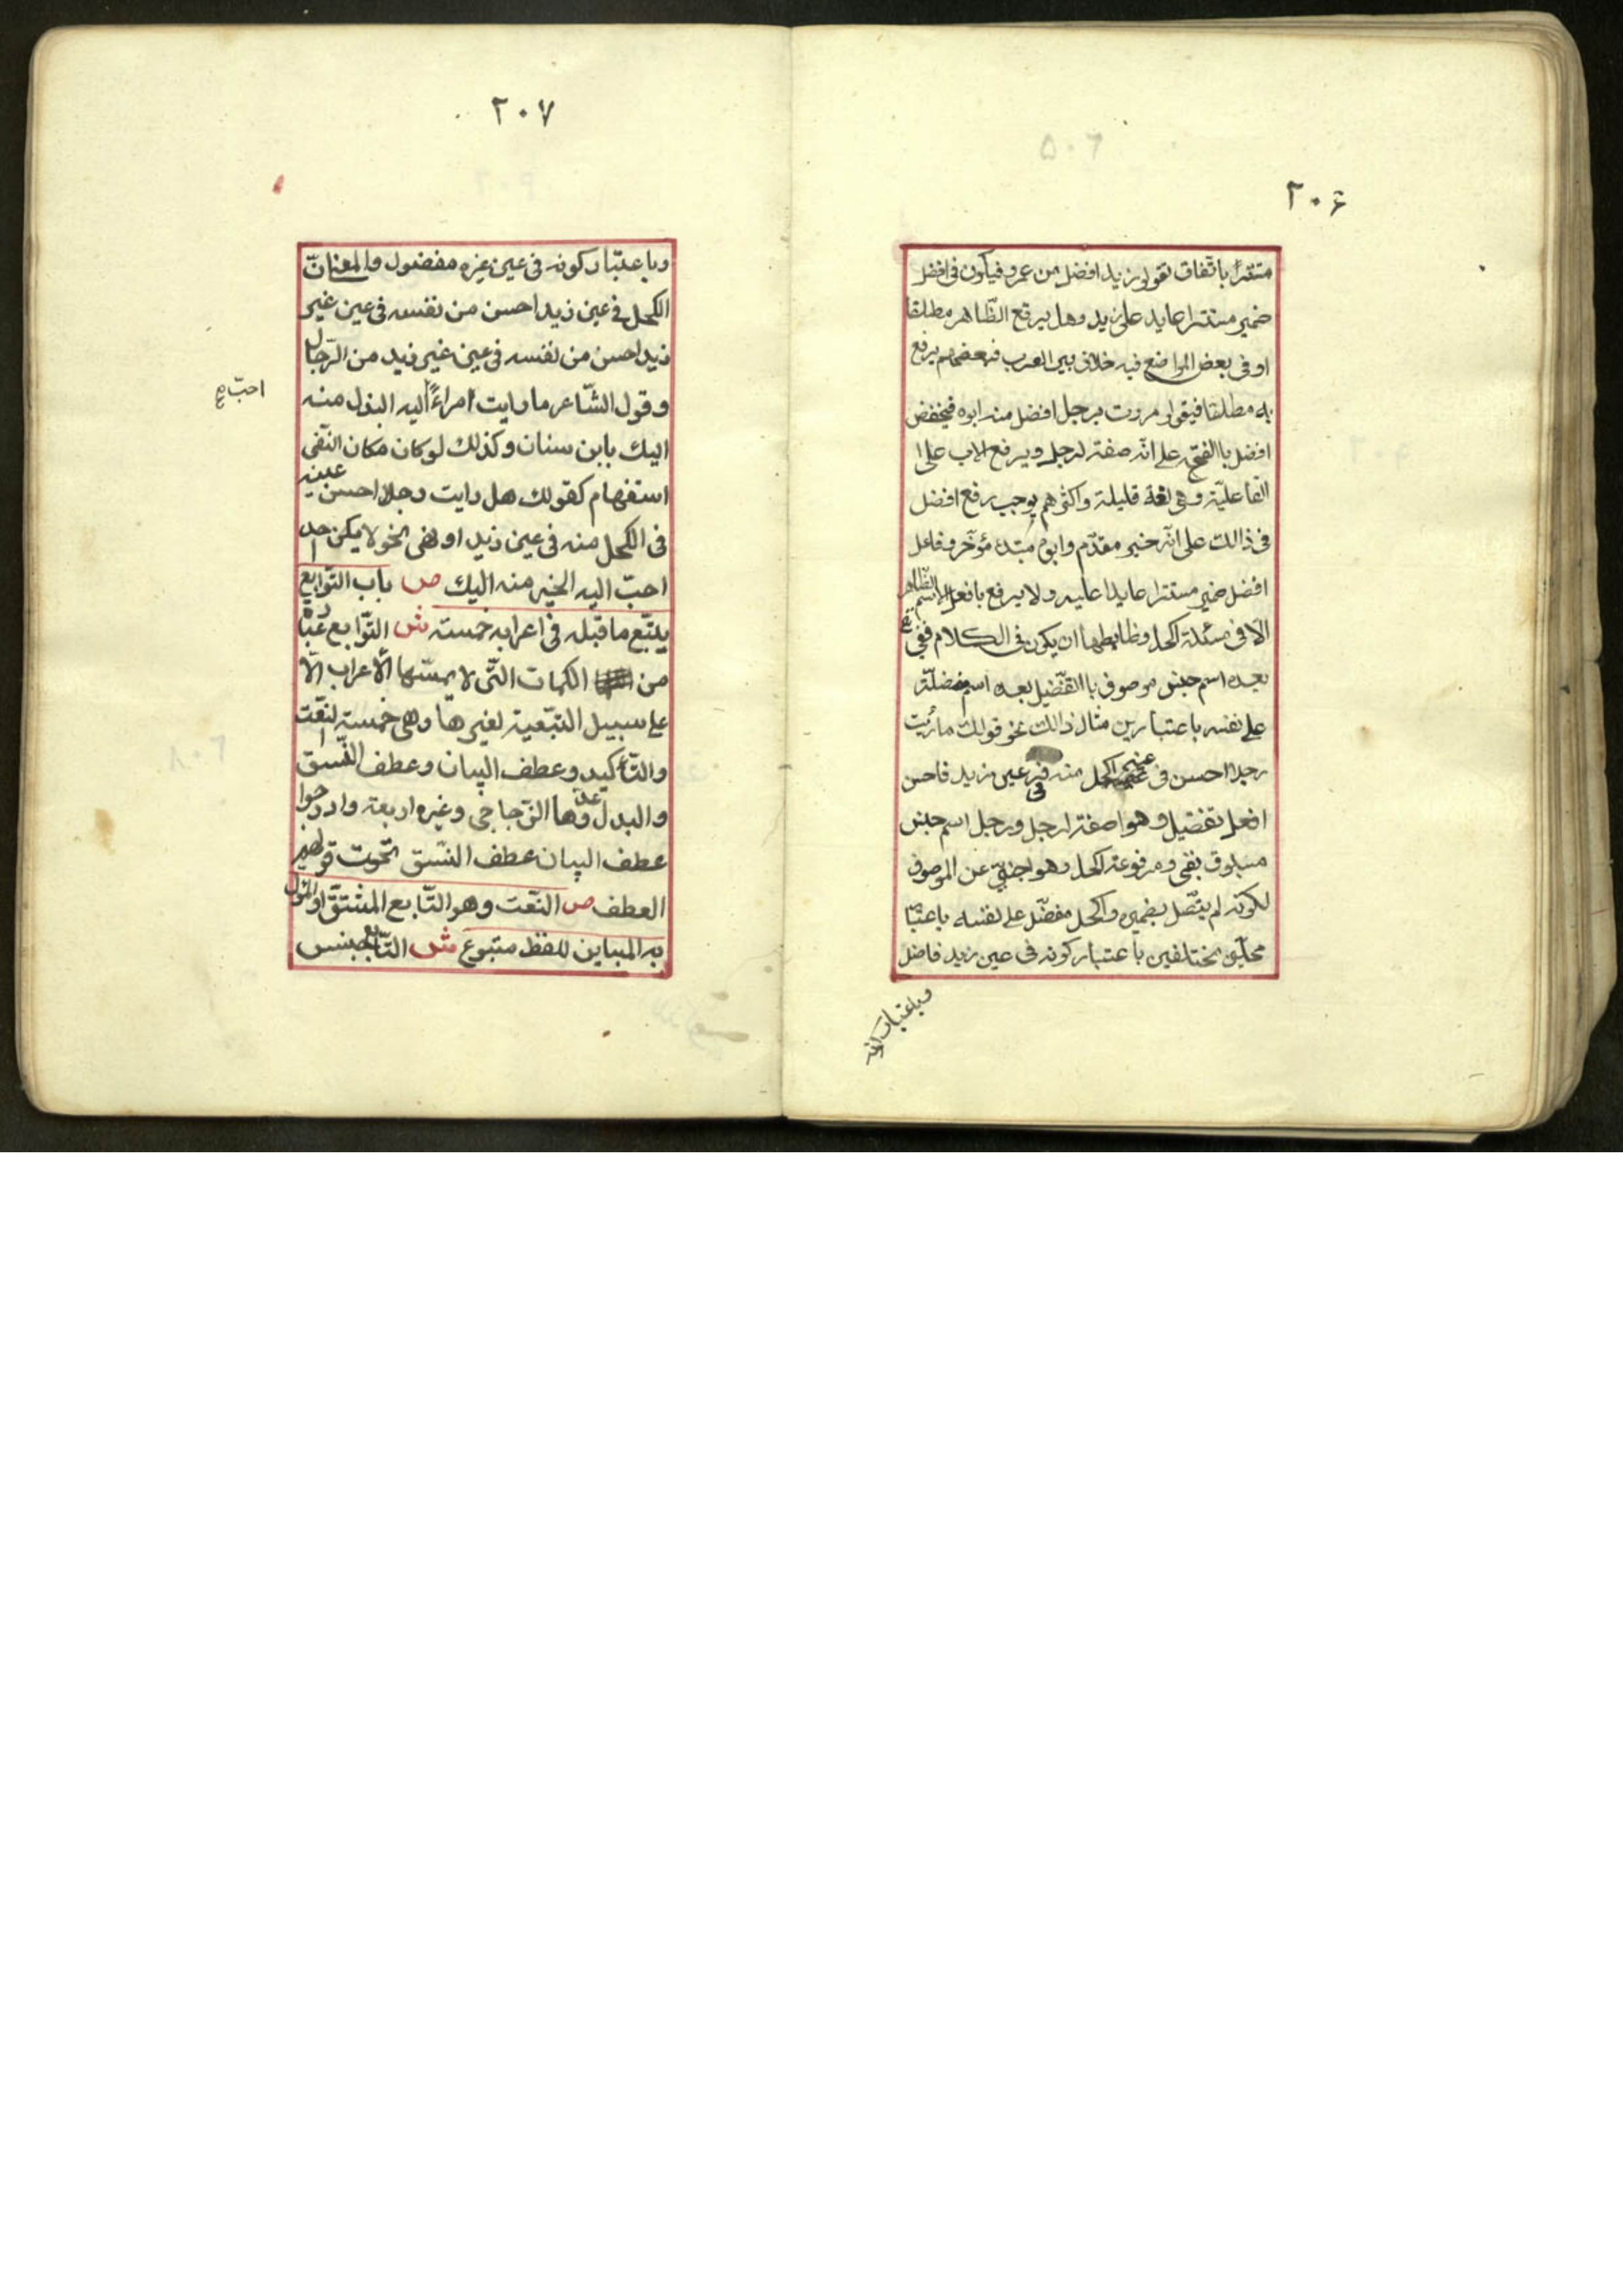 ٢٠٦
مستترا باتّفاق تقول زيد افضل من عمرو فيكون فى افضل
ضمير مستترا عايد على زيد وهل يرفع الظّاهر مطلقا
او فى بعض المواضع فيه خلاف بين العرب فبعضهم يرفع
به مطلقا فيقول مررت برجل افضل منه ابوه فيخفض
افضل با الفتحة على انّه صفة لرجل ويرفع الاب على ا
الفاعليّة وهى لغة قليلة واكثرهم يوجب رفع افضل
فى ذالك على انّه خبر مقدّم وابوه مبتدء مؤخّر وفاعل
افضل ضمير مستترا عايدا عليه ولا يرفع بافعل الاسم الظّاهر
الّا فى مسئلة الكحل وظابطها ان يكون فى الكلام نفى
بعده اسم جنس موصوف با التفضيل بعده اسم مفضلّة
على نفسه باعتبارين مثال ذالك نحو قولك ما رئيت
رجلا احسن فى عينه الكحل منه فى عين زيد فاحسن
افعل تفضيل وهوا صفة لرجل ورجل اسم جنس
مسبوق بنفى ومرفوعه الكحل وهو اجنبىّ عن الموصوف
لكونه لم يتّصل بضميره والكحل مفضّل على نفسه باعتبا
محلّين مختلفين باعتبار كونه فى عين زيد فاضل
وباعتبار كونه
٢٠٧
وباعتبار كونه فى عين غيره مفضول والمعنى انّ
الكحل فى عين زيد احسن من نفسه فى عين غير
زيد احسن من نفسه فى عين غير زيد من الرّجال
وقول الشّاعر ما رايت امراءً اليه البذل منه
احبّ صح
اليك يابن سنان وكذلك لو كان مكان النّفى
استفهام كقولك هل رايت رجلا احسن عينه
فى الكحل منه فى عين زيد او نهى نحو لا يكن احد
احبّ اليه الخير منه اليك ص باب التّوابع
يتّبع ما قبله فى اعرابه خمسة ش التّوابع عبارة
من الكلمات التّى لا يمسّها الأعراب الّا
على سبيل التبّعية لغيرها وهى خمسة النّعت
والتّأكيد وعطف البيان وعطف النّسق
والبدل وعدّها الزّجاجى وغيره اربعة وادرجوا
عطف البيان عطف النسّق تحت قولهم
العطف ص النّعت وهو التّابع المشتقّ او المؤل
به المباين للفظ متبوع ش التّابع جنس